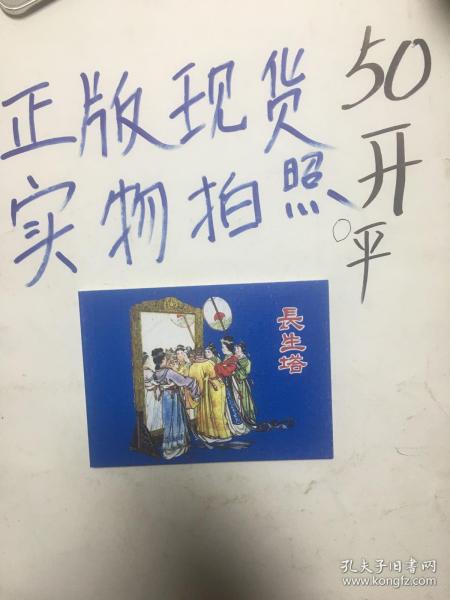 正版现货
实物拍照
50开平
長生塔
孔夫子旧书网
www.kongfz.com